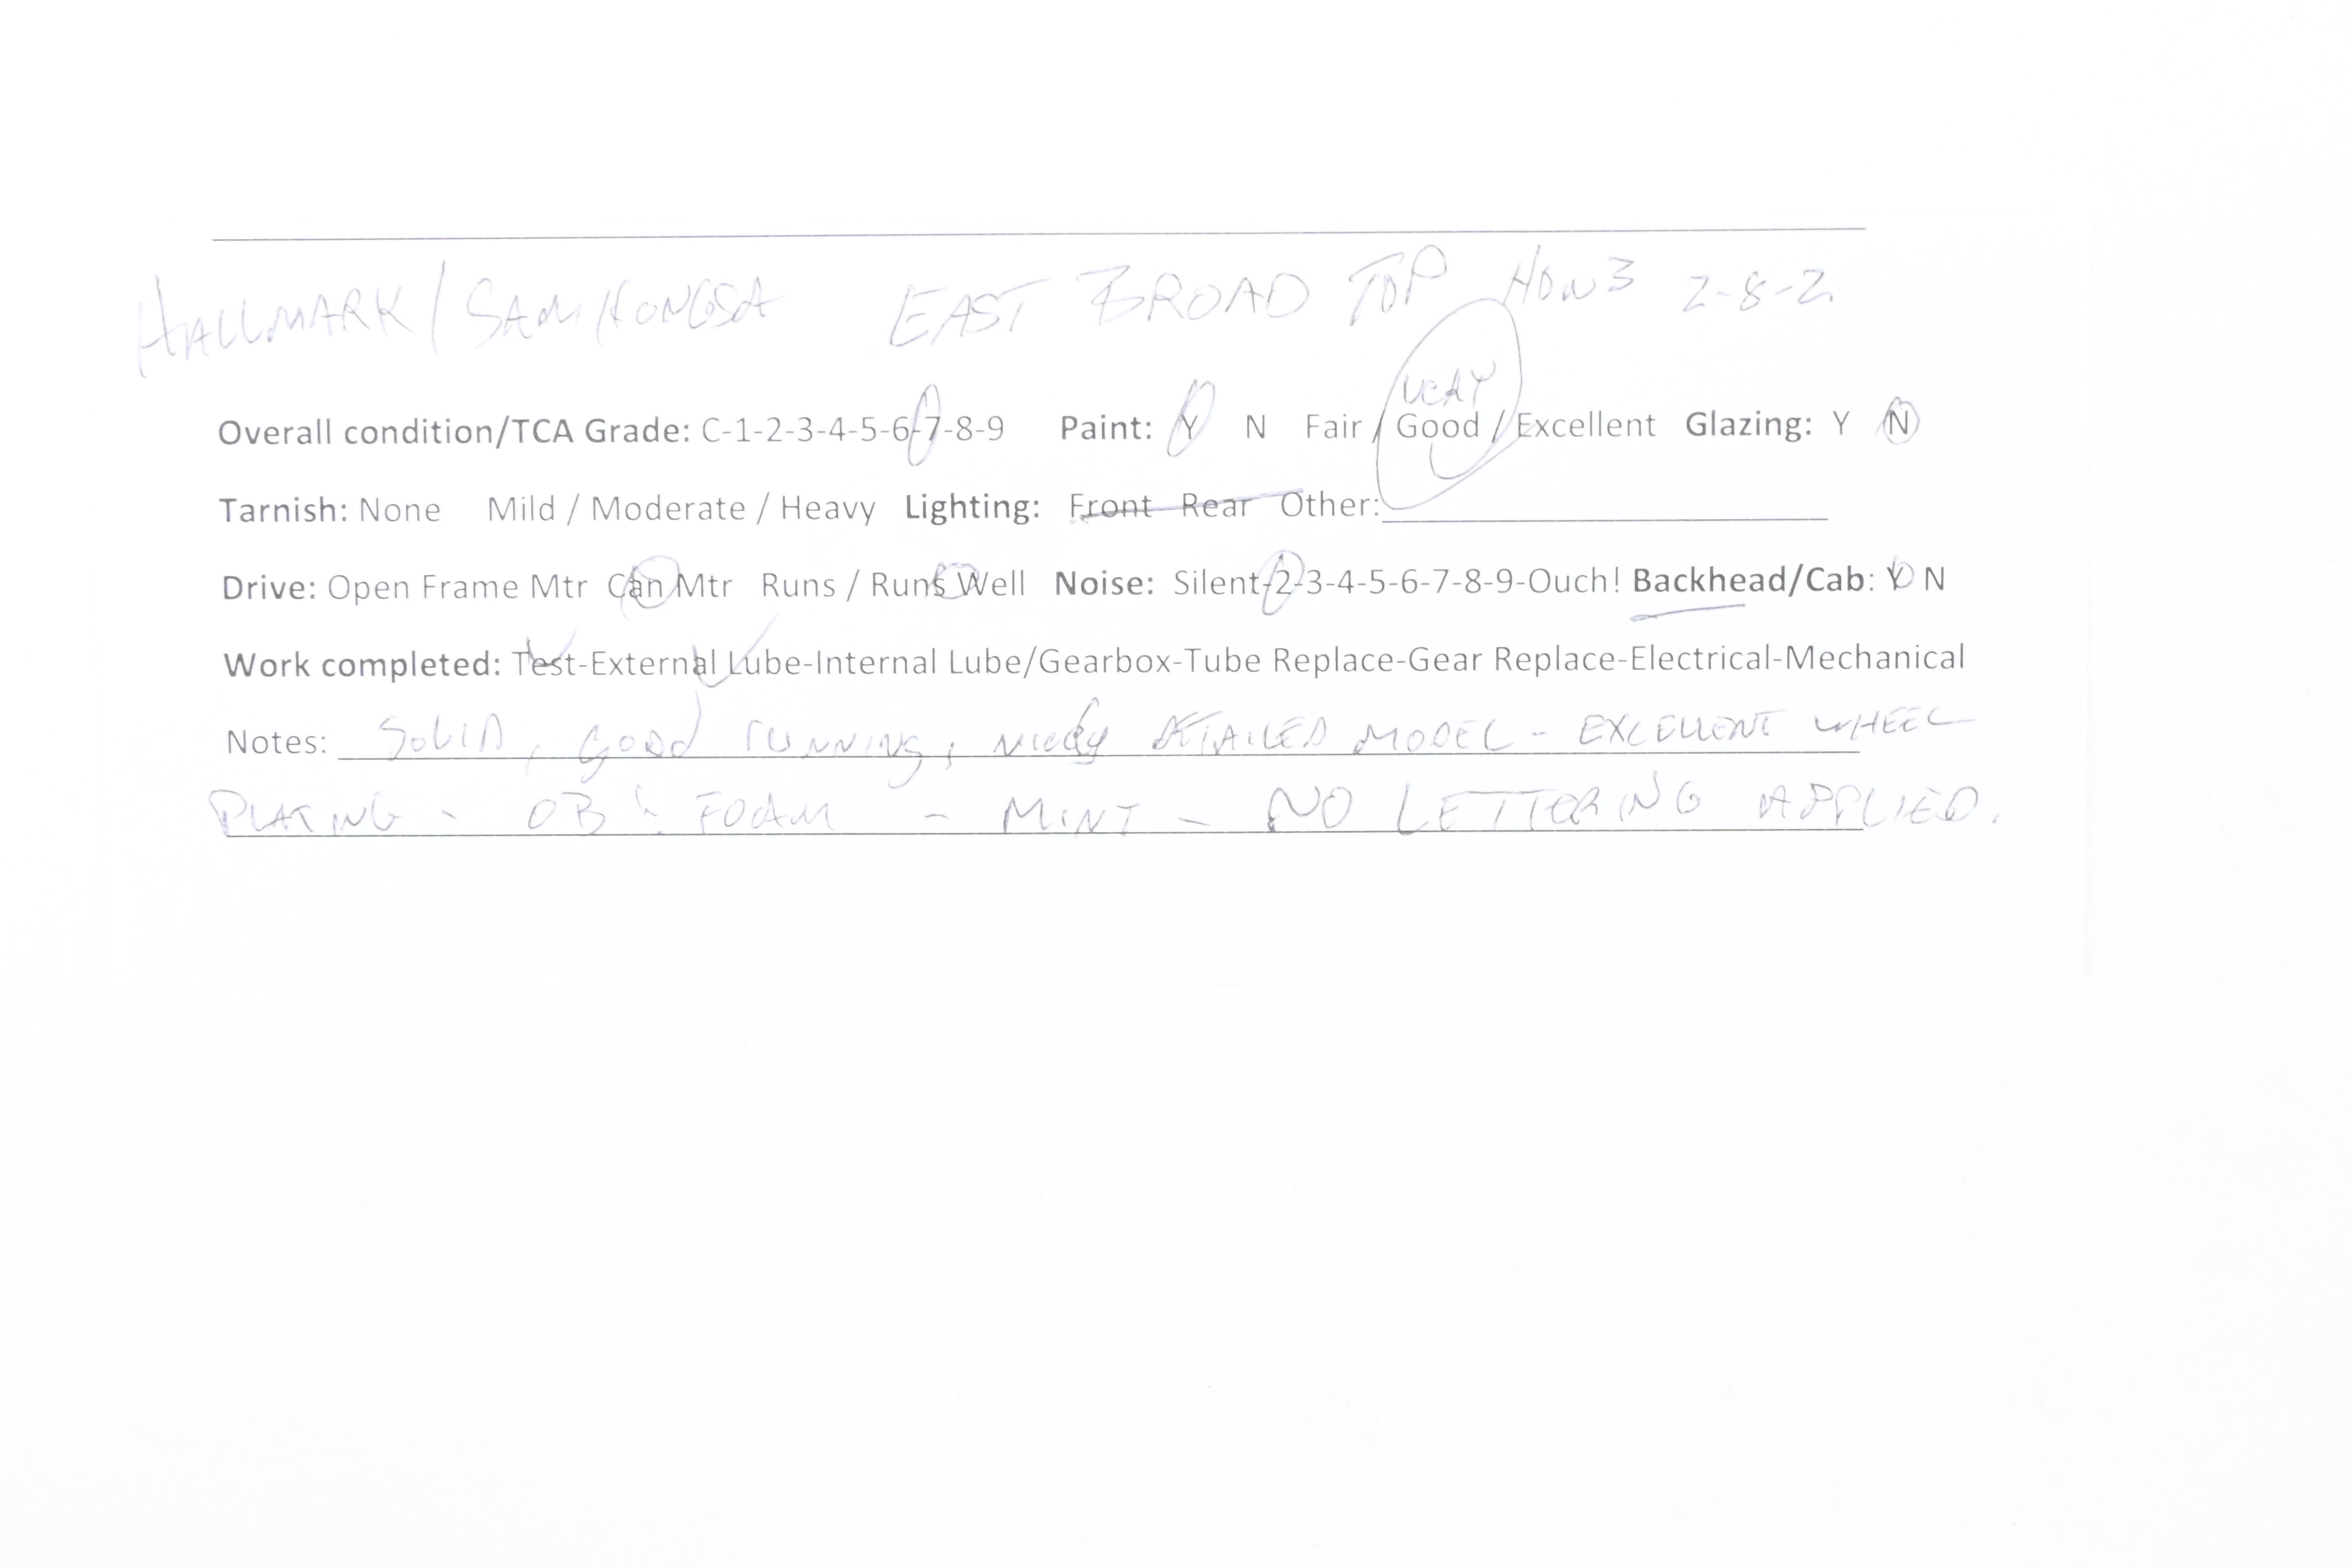 HALLMARK / SAMHONGSA EAST BROAD TOP HOn3 2-8-2
VERY
Overall condition/TCA Grade: C-1-2-3-4-5-6-7-8-9 Paint: Y N Fair / Good / Excellent Glazing: Y N
Tarnish: None Mild / Moderate / Heavy Lighting: Front Rear Other:
Drive: Open Frame Mtr Can Mtr Runs / Runs Well Noise: Silent-2-3-4-5-6-7-8-9-Ouch! Backhead/Cab: Y N
Work completed: Test-External Lube-Internal Lube/Gearbox-Tube Replace-Gear Replace-Electrical-Mechanical
Notes: SOLID, GOOD RUNNING, NICELY DETAILED MODEL - EXCELLENT WHEEL
PLATING - OB & FOAM - MINT - NO LETTERING APPLIED.